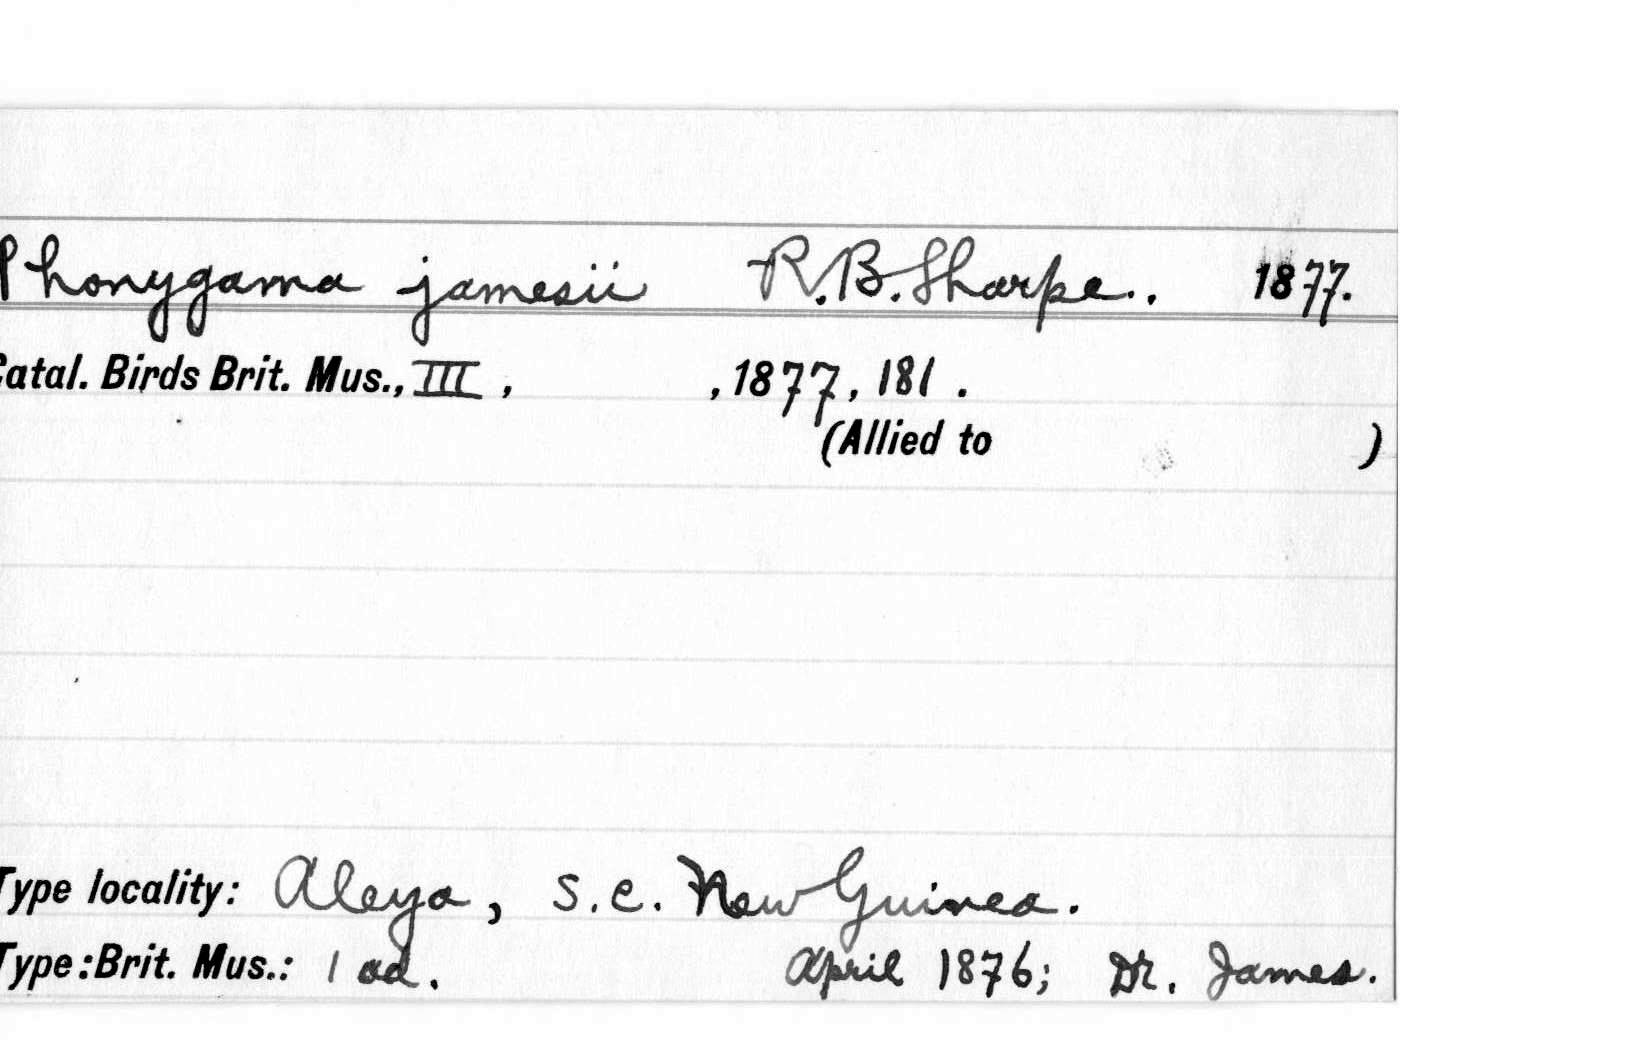 Phonygama jamesii R.B. Sharpe.. 1877.
Catal. Birds Brit. Mus., III , , 1877, 181 .
(Allied to )
Type locality: Aleya, s.e. New Guinea.
Type: Brit. Mus.: 1 ad. April 1876; Dr. James.